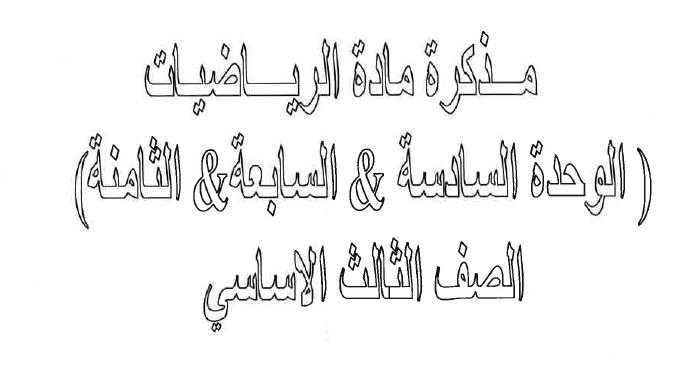 مـذكرة مادة الريـــاضيـات
( الوحدة السادسة & السابعة& الثامنة)
الصف الثالث الاساسي